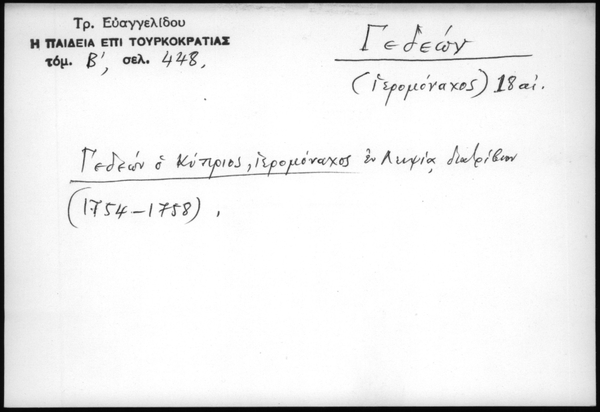 Τρ. Εὐαγγελίδου
Η ΠΑΙΔΕΙΑ ΕΠΙ ΤΟΥΡΚΟΚΡΑΤΙΑΣ
τόμ. Β', σελ. 448.
Γεδεών
(ἱερομόναχος) 18 αἰ.
Γεδεών ὁ Κύπριος, ἱερομόναχος ἐν Λειψίᾳ διατρίβων
(1754-1758).